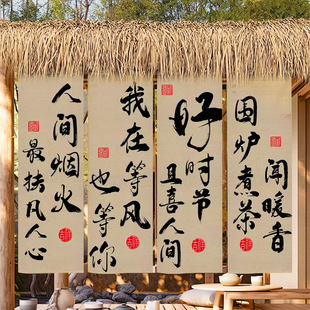 人间烟火
最扶凡人心
我在等风
也等你
好时节
且喜人间
围炉煮茶
闻暖香